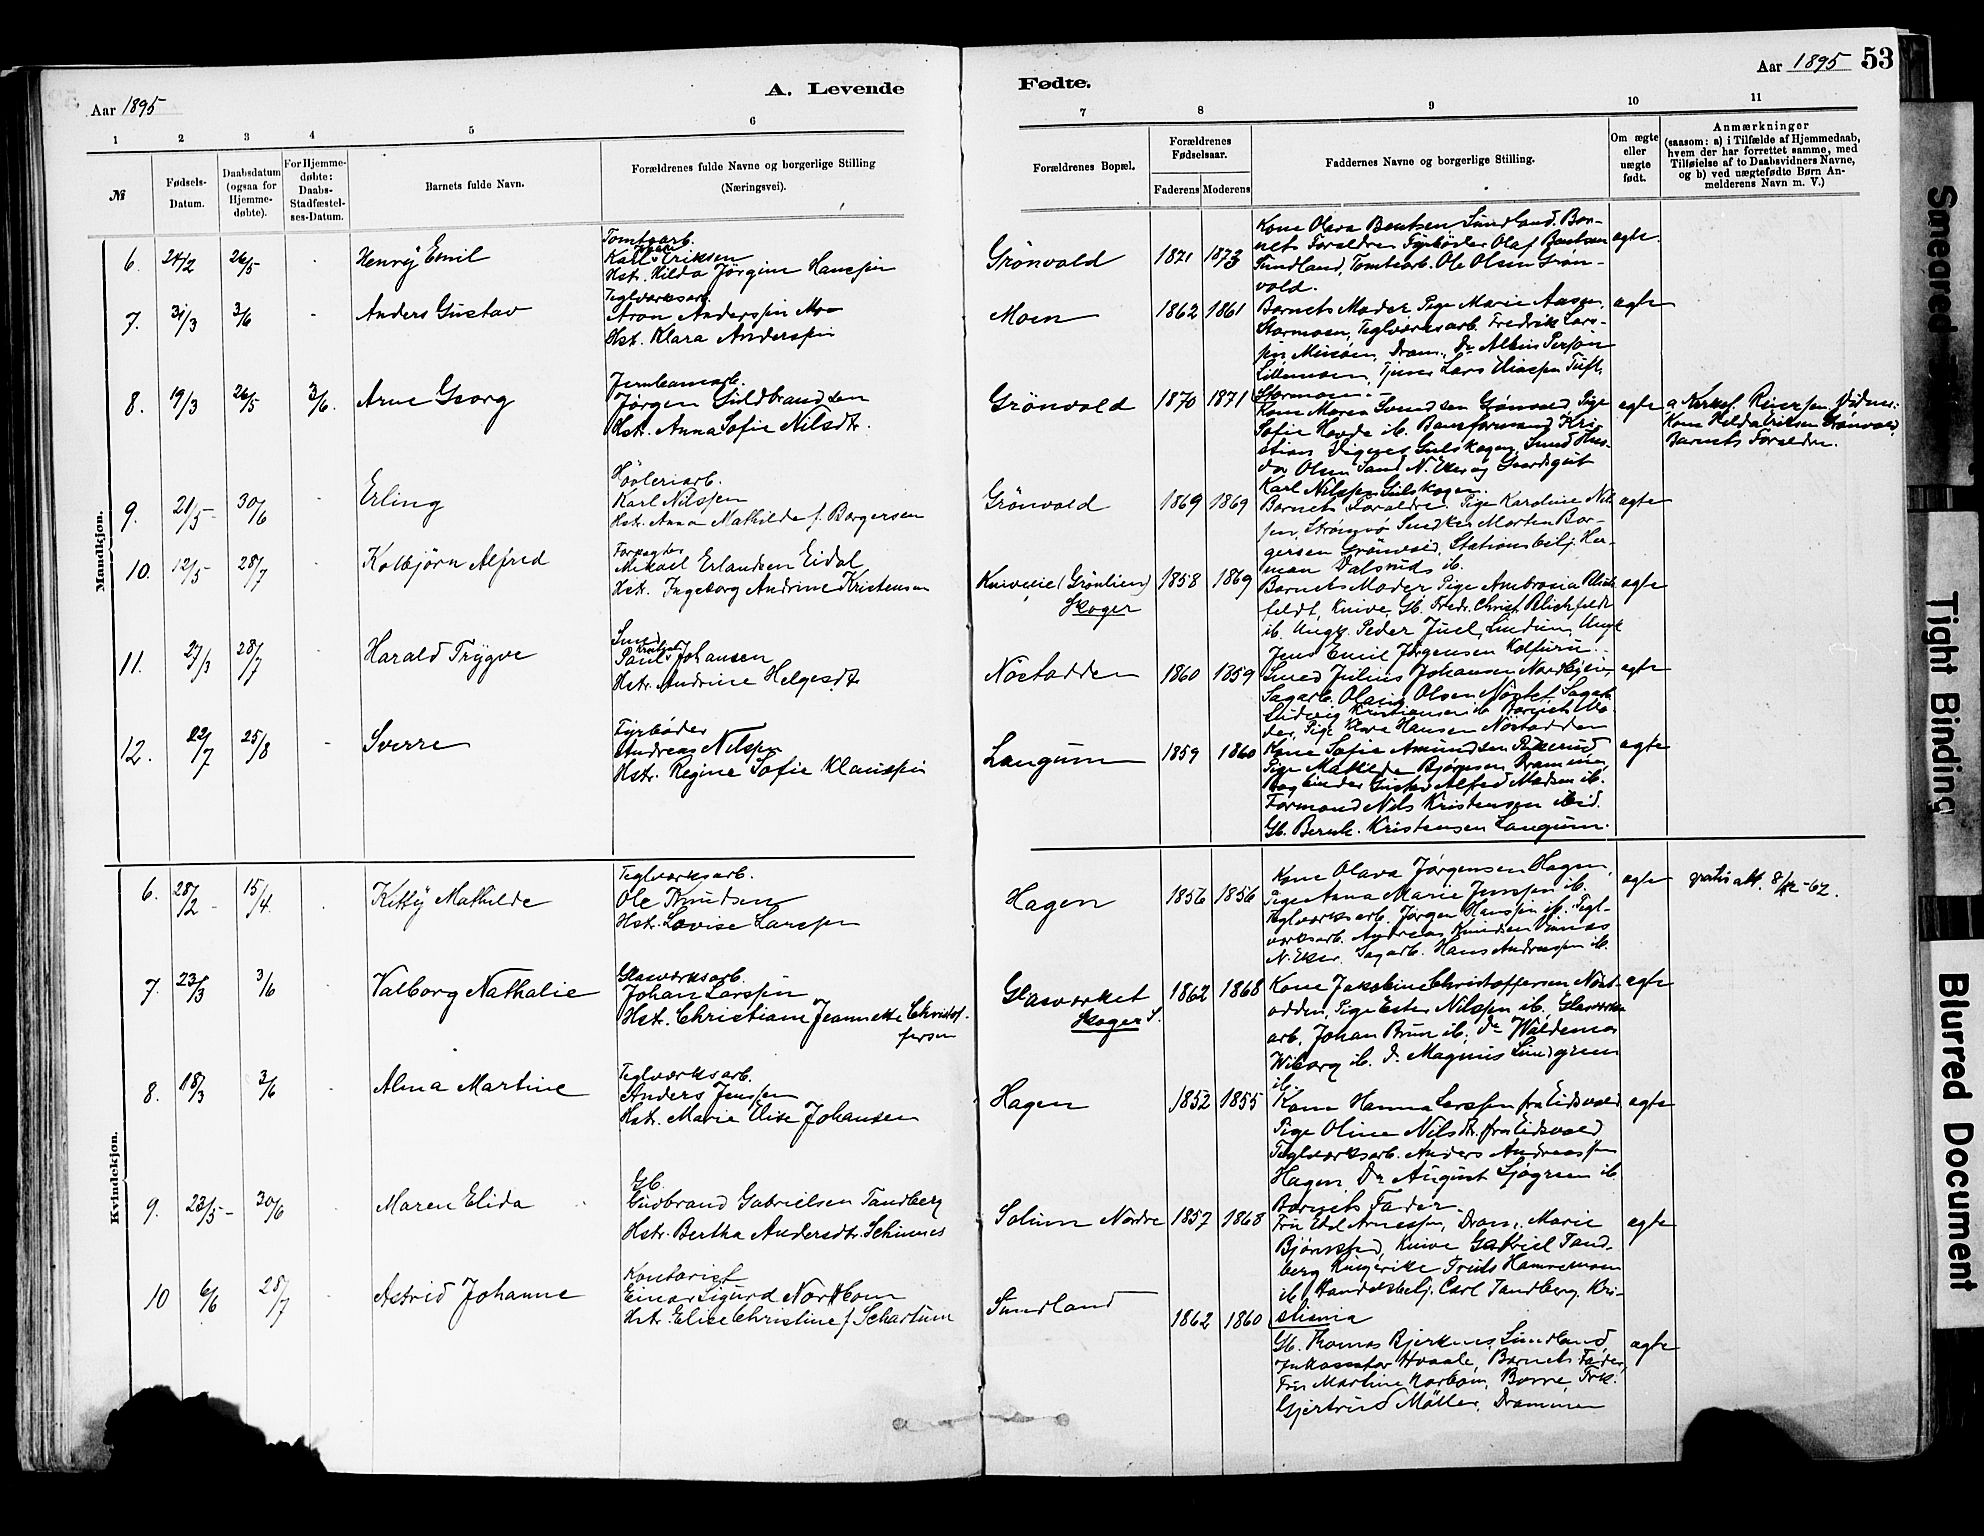 Aar 1895
A. Levende
Fødte.
Aar 1895
53
1 2 3 4 5 6 7 8 9 10 11
№
Fødsels-
Datum.
Daabsdatum
(ogsaa for
Hjemme-
døbte).
For Hjemme-
døbte:
Daabs-
Stadfæstel-
ses-Datum.
Barnets fulde Navn.
Forældrenes fulde Navne og borgerlige Stilling
(Næringsvei).
Forældrenes Bopæl.
Forældrenes
Fødselsaar.
Faderens Moderens
Faddernes Navne og borgerlige Stilling.
Om ægte
eller
uægte
født.
Anmærkninger
(saasom: a) i Tilfælde af Hjemmedaab,
hvem der har forrettet samme, med
Tilføielse af to Daabsvidners Navne,
og b) ved uægtefødte Børn An-
melderens Navn m. V.)
Mandkjøn.
6. 24/2 26/5 Henrÿ Emil
Tomtearb.
Karl Eriksen
Hst. Hilda Jörgine Hanssen
Grönvold 1871 1873
Kone Olava Bentsen, Sundland. Bar-
nets Foraldre Fyrböder Olaf Bentsen
Sundland, Tomtearb. Ole Olsen Grön-
vold.
ægte
7. 31/3 3/6 Anders Gustav
Teglværksarb.
Aron Anderssen Moe
Hst. Klara Anderssen
Moen 1862 1861
Barnets Moder, Pige Marie Aasen,
Stormoen, Teglværksarb. Fredrik Lars-
sen Moen, Dram., Do Albin Person
Lillemoen, Tjener Lars Eliassen Tuft,
Stormoen.
ægte
8. 19/3 26/5 3/6. Arne Georg
Jernbanearb.
Jörgen Guldbrandsen
Hst. Anna Sofie Nilsdr.
Grönvold 1870 1871
Kone Maren Svendsen Grönvold Pige
Sofie Hovde ib. Baneformand Kri-
stian Vigenes Gulskogen, Smed
Olsen Sand N. Eker og Gaardsgut
Karl Nilssen Gulskogen.
ægte
a Kirkes. Riversen. Vidner:
Kone Hilda Eriksen Grönvold,
Barnets Foraldre.
9. 21/5 30/6 Erling
Hövleriarb.
Karl Nilssen
Hst. Anna Mathilde f. Borgersen
Grönvold 1869 1869
Barnets Foraldre. Pige Karoline Nils-
sen, Strömsö Snedker Morten Bor-
gersen Grönvold, Stationsbetj. Her-
man Dalsrud ib.
ægte
10. 12/5 28/7 Kolbjörn Alfred
Forpagter
Mikael Erlandsen Eidal
Hst. Ingeborg Andrine Kristensen
Kniveie (Grönlien)
Skoger
1858 1869
Barnets Moder, Pige Ambrosia Blich-
feldt, Knive Gb. Fredr. Christ. Blichfeldt
ib. Ungk. Peder Juel, Lindum, Ungk
Jens Emil Jörgensen Kolfurn.
ægte
11. 27/3 28/7 Harald Trÿgve
Smed
Paul Kristian Johansen
Hst. Andrine Helgesdr.
Nöstodden 1860 1859
Smed Julius Johansen Nordbyen,
Sagarb. Olaus Olsen Nöstet, Sagarb
Ludvig Kristiansen ib. Barnets Mo-
der, Pige Klara Hansen Nöstodden
ægte
12. 22/7 25/8 Sverre
Fyrböder
Andreas Nilssen
Hst. Regine Sofie Klaussen
Langum 1859 1860
Kone Sofie Amundsen Bikerud,
Pige Mathilde Björnsen Drammen,
Bogbinder Gustav Alfred Madsen ib.
Formand Nils Kristensen ibid.
Gb. Bernh. Kristensen Langum.
ægte
Kvindekjøn.
6. 28/2 15/4 Kittÿ Mathilde
Teglværksarb.
Ole Knudsen
Hst. Lovise Larssen
Hagen 1856 1856
Kone Olava Jörgensen Hagen,
Pige Anna Marie Jenssen ib.
Teglværksarb. Jörgen Hanssen ib. Tegl-
værksarb. Andreas Knudsen
N. Eker. Sagarb. Hans Andreassen ib.
ægte
gratis att. 8/12-62.
7. 23/3 3/6 Valborg Nathalie
Glasværksarb.
Johan Larssen
Hst. Christiane Jeannette Christof-
fersen
Glasværket
Skoger S.
1862 1868
Kone Jakobine Christoffersen Nöst-
odden, Pige Ester Nilssen ib, Glasværks-
arb. Johan Brun ib, Do Waldemar
Wiborg ib. Do Magnus Lindgreen
ib.
ægte
8. 18/3 3/6 Alma Martine
Teglværksarb.
Anders Jenssen
Hst. Marie Elise Johansen
Hagen 1852 1855
Kone Hanna Larssen fra Eidsvold
Pige Oline Nilsdr. fra Eidsvold
Teglværksarb. Anders Andreassen
Hagen Do August Sjögren ib
Barnets Fader.
ægte
9. 23/5 30/6 Maren Elida
Gb.
Gudbrand Gabrielsen Tandberg
Hst. Bertha Andersdtr. Schinnes
Solum Nordre 1857 1868
Fru Edel Arnessen, Dram., Marie
Björnstad, Knive Gabriel Tand-
berg Ringerike Truls Hammersson
ib Handelsbetj. Carl Tandberg, Kri-
stiania
ægte
10 6/6 28/7 Astrid Johanne
Kontorist
Einar Sigurd Northom
Hst. Elise Christine f Schartum
Sundland 1862 1860
Gb. Thomas Bjerknes, Sundland,
Inkassator Hvaale, Barnets Fader,
Fru Martine Norbom, Borre, Frk.
Gjertrud Möller, Drammen
ægte
Smeared
Tight Binding
Blurred Document